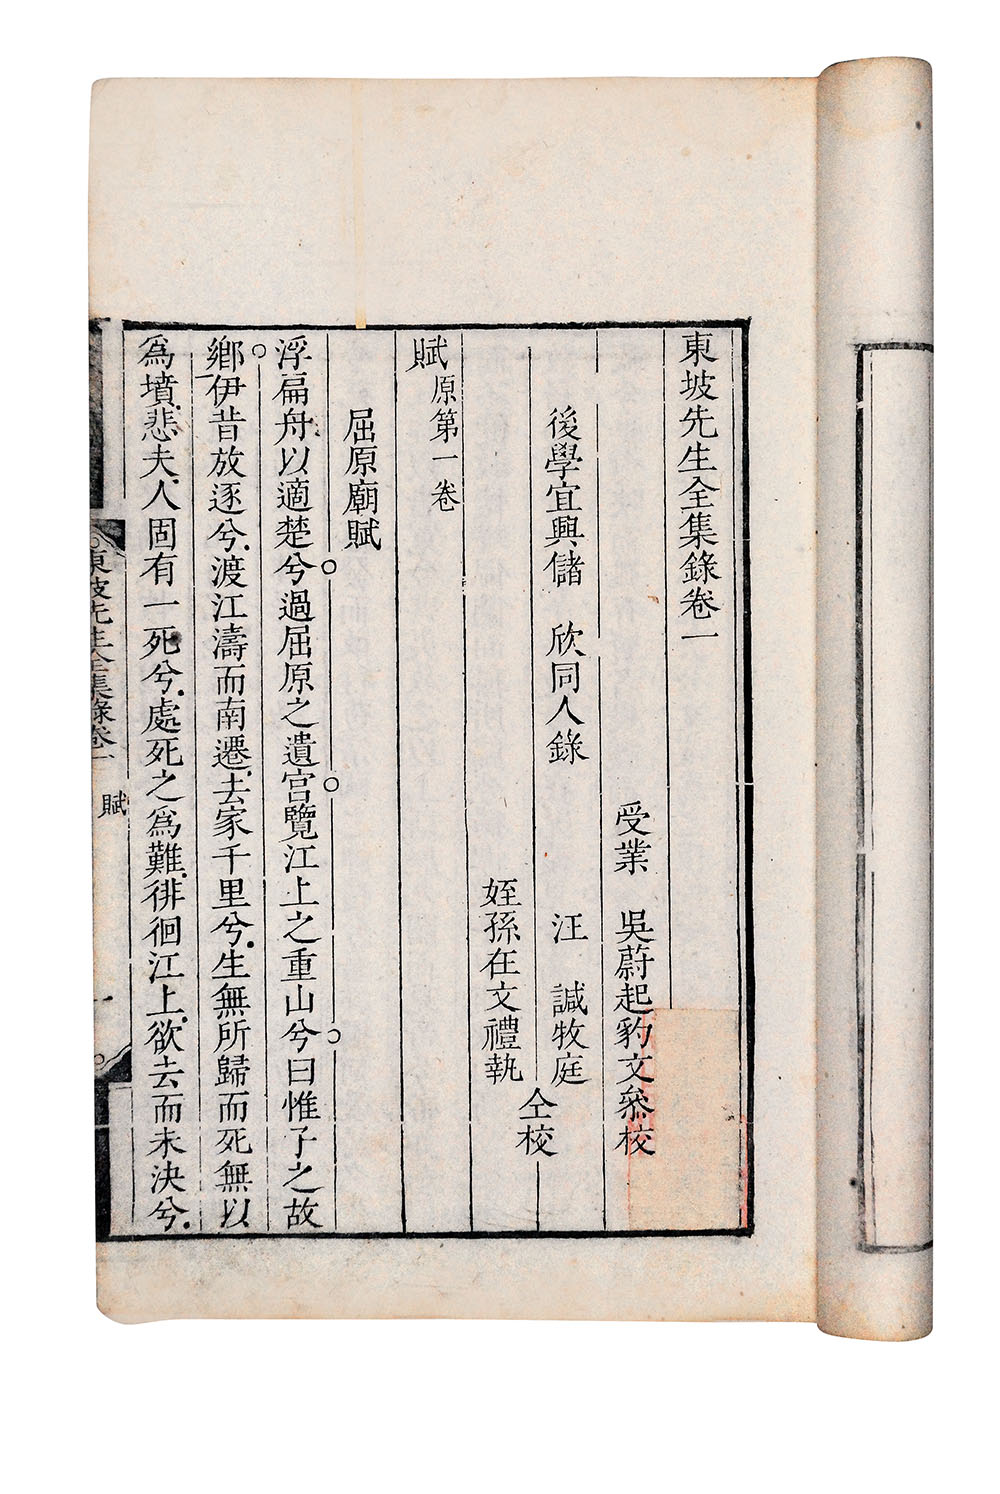 東坡先生全集錄卷一
受業 吳蔚起豹文叅校
後學宜興儲 欣同人錄
汪 諴牧庭
姪孫在文禮執
仝校
賦原第一卷
屈原廟賦
浮扁舟以適楚兮過屈原之遺宮覽江上之重山兮曰惟子之故
鄉伊昔放逐兮渡江濤而南遷去家千里兮生無所歸而死無以
為墳悲夫人固有一死兮處死之為難徘徊江上欲去而未決兮
東坡先生全集錄卷一 賦 一